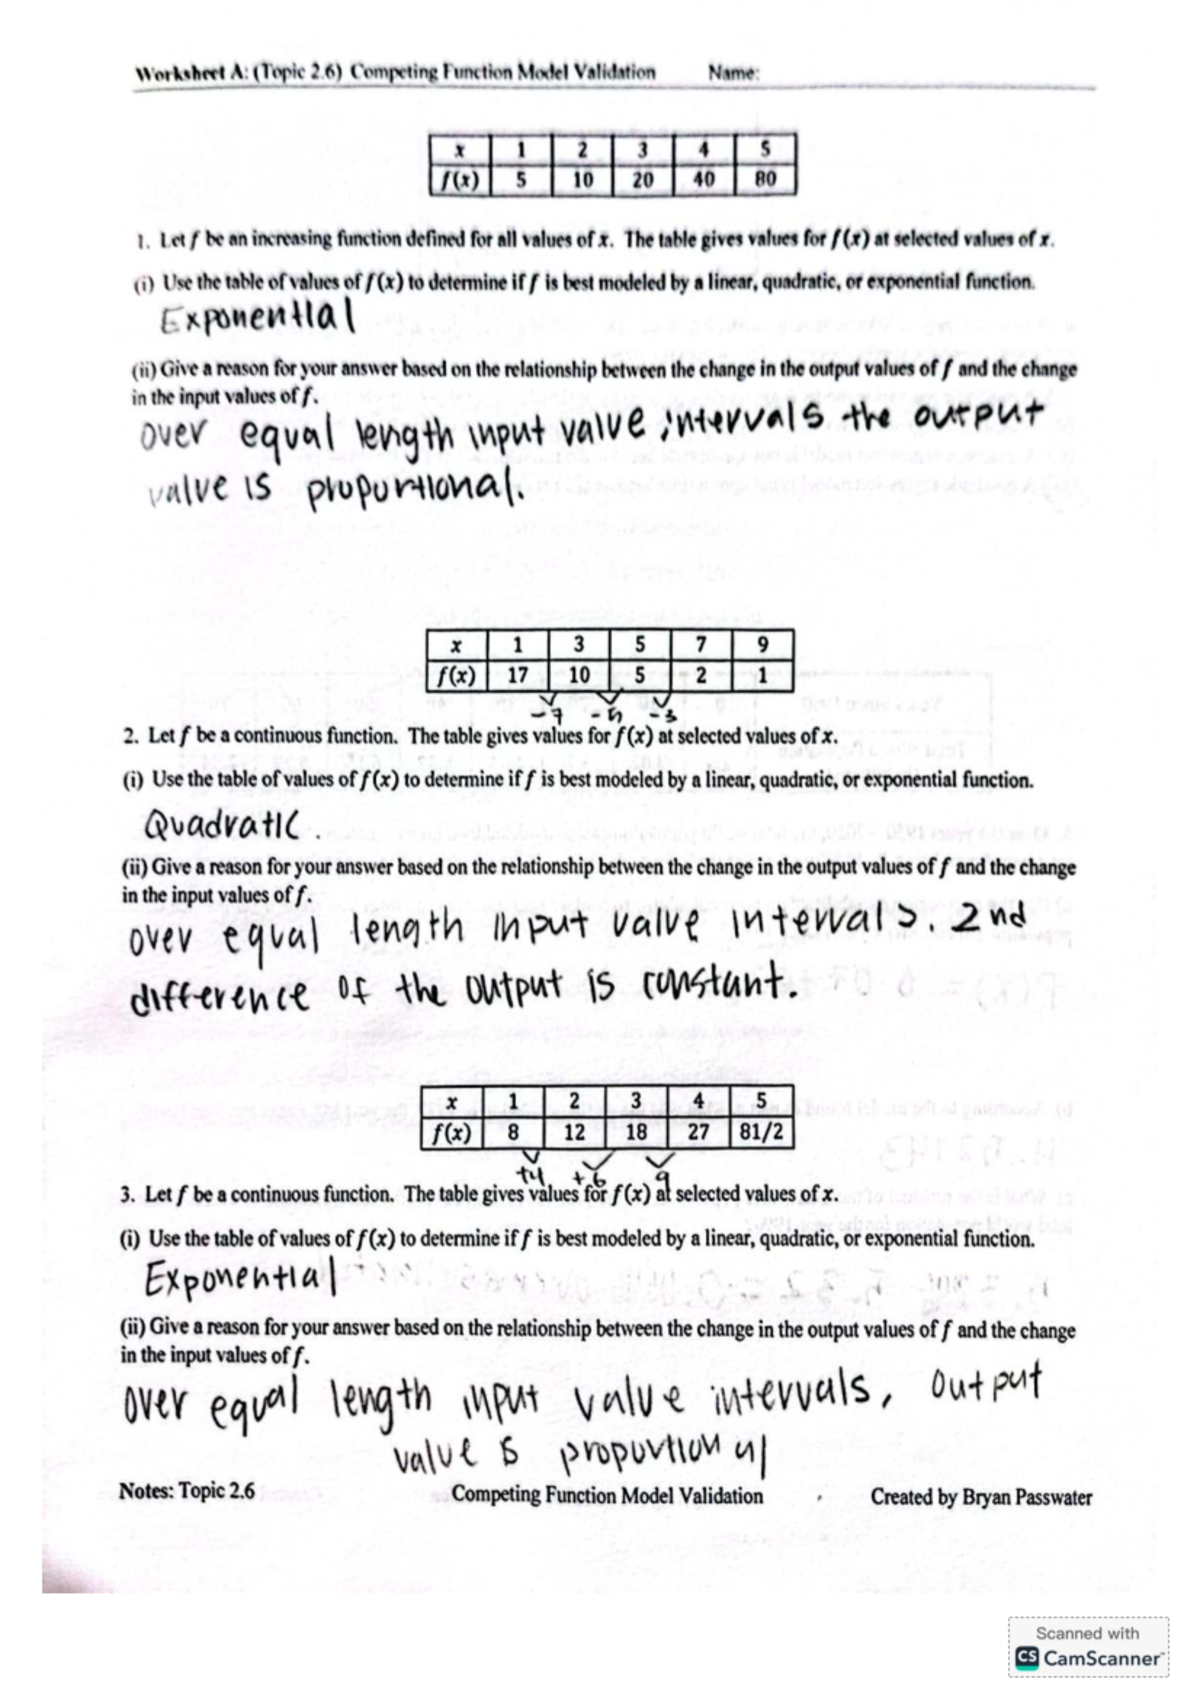 Worksheet A: (Topic 2.6) Competing Function Model Validation Name:
x 1 2 3 4 5
f(x) 5 10 20 40 80
1. Let f be an increasing function defined for all values of x. The table gives values for f(x) at selected values of x.
(i) Use the table of values of f(x) to determine if f is best modeled by a linear, quadratic, or exponential function.
Exponential
(ii) Give a reason for your answer based on the relationship between the change in the output values of f and the change
in the input values of f.
over equal length input value intervals the output
value is proportional.
x 1 3 5 7 9
f(x) 17 10 5 2 1
-7 -5 -3
2. Let f be a continuous function. The table gives values for f(x) at selected values of x.
(i) Use the table of values of f(x) to determine if f is best modeled by a linear, quadratic, or exponential function.
Quadratic.
(ii) Give a reason for your answer based on the relationship between the change in the output values of f and the change
in the input values of f.
over equal length input value intervals. 2nd
difference of the output is constant.
x 1 2 3 4 5
f(x) 8 12 18 27 81/2
+4 +6 9
3. Let f be a continuous function. The table gives values for f(x) at selected values of x.
(i) Use the table of values of f(x) to determine if f is best modeled by a linear, quadratic, or exponential function.
Exponential
(ii) Give a reason for your answer based on the relationship between the change in the output values of f and the change
in the input values of f.
over equal length input value intervals, output
value is proportional
Notes: Topic 2.6 Competing Function Model Validation Created by Bryan Passwater
Scanned with
CS CamScanner